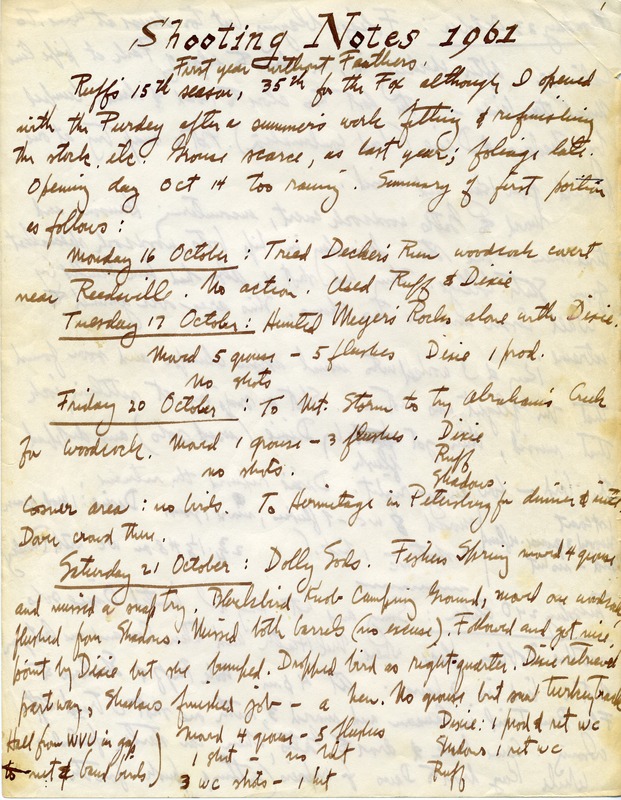 Shooting Notes 1961
First year without Feathers.
Ruff's 15th season, 35th for the Fox although I opened
with the Purdey after a summer's work fitting & refinishing
the stock, etc. Grouse scarce, as last year; foliage late.
Opening day Oct 14 too rainy. Summary of first portion
as follows:
Monday 16 October : Tried Decker's Run woodcock covert
near Reedsville. No action. Used Ruff & Dixie
Tuesday 17 October : Hunted Meyers Rocks alone with Dixie.
Moved 5 grouse – 5 flushes Dixie 1 prod.
No shots
Friday 20 October : To Mt. Storm to try Abraham's Creek
for woodcock. Moved 1 grouse – 3 flushes. Dixie
Ruff
no shots. Shadows.
Cosner area : no birds. To Hermitage in Petersburg for dinner & nite.
Davis crowd there.
Saturday 21 October : Dolly Sods. Fishers Spring moved 4 grouse
and missed a snap try. Blackbird Knob Camping Ground, moved one woodcock
flushed from Shadows. Missed both barrels (no excuse). Followed and got nice
point by Dixie but she bumped. Dropped bird as right-quarter. Dixie retrieved
partway, Shadows finished job – a hen. No grouse but saw turkey track
Hall from WVU in gap
to net & band birds)
Moved 4 grouse – 5 flushes Dixie: 1 prod & ret wc
1 shot – no hit Shadows 1 ret wc
3 wc shots – 1 hit Ruff